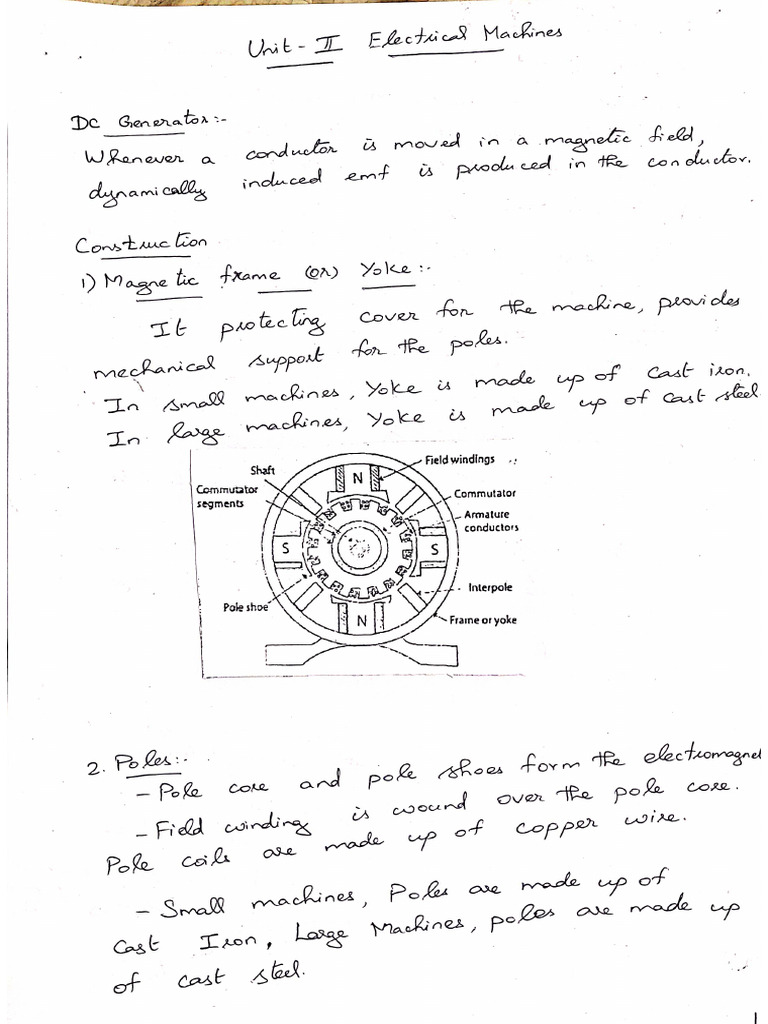 Unit - II Electrical Machines
DC Generator:-
Whenever a conductor is moved in a magnetic field,
dynamically induced emf is produced in the conductor.
Construction
1) Magnetic frame (or) Yoke:-
It protecting cover for the machine, provides
mechanical support for the poles.
In small machines, Yoke is made up of cast iron.
In large machines, Yoke is made up of cast steel.
Shaft
Field windings
Commutator
segments
N
Commutator
Armature
conductors
S
S
Interpole
Pole shoe
N
Frame or yoke
2. Poles:-
- Pole core and pole shoes form the electromagnet
- Field winding is wound over the pole core.
Pole coils are made up of copper wire.
- Small machines, Poles are made up of
Cast Iron, Large Machines, poles are made up
of cast steel.
1